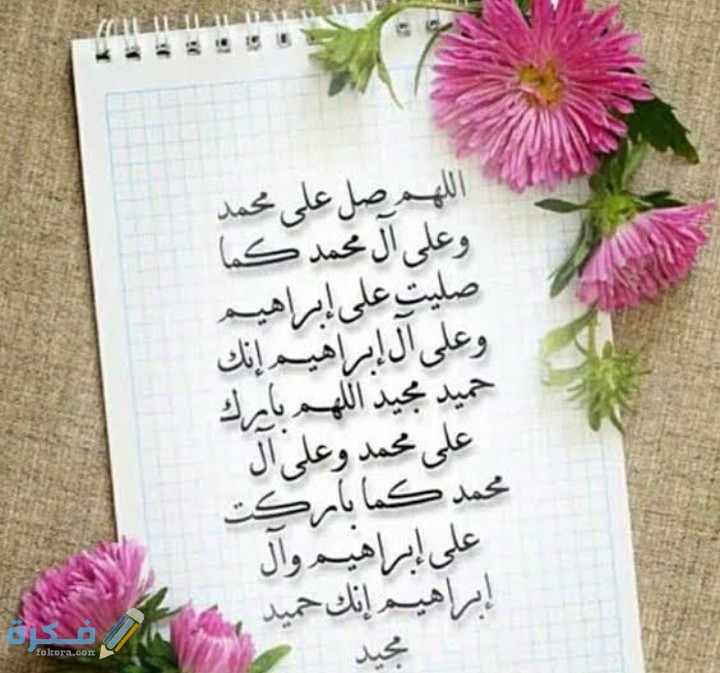 اللهم صل على محمد
وعلى آل محمد كما
صليت على إبراهيم
وعلى آل إبراهيم إنك
حميد مجيد اللهم بارك
على محمد وعلى آل
محمد كما باركت
على إبراهيم وآل
إبراهيم إنك حميد
مجيد
فكرة
fokora.com